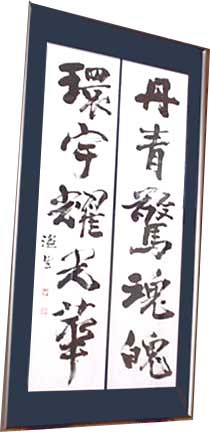 丹青驚魂魄
環宇耀光華